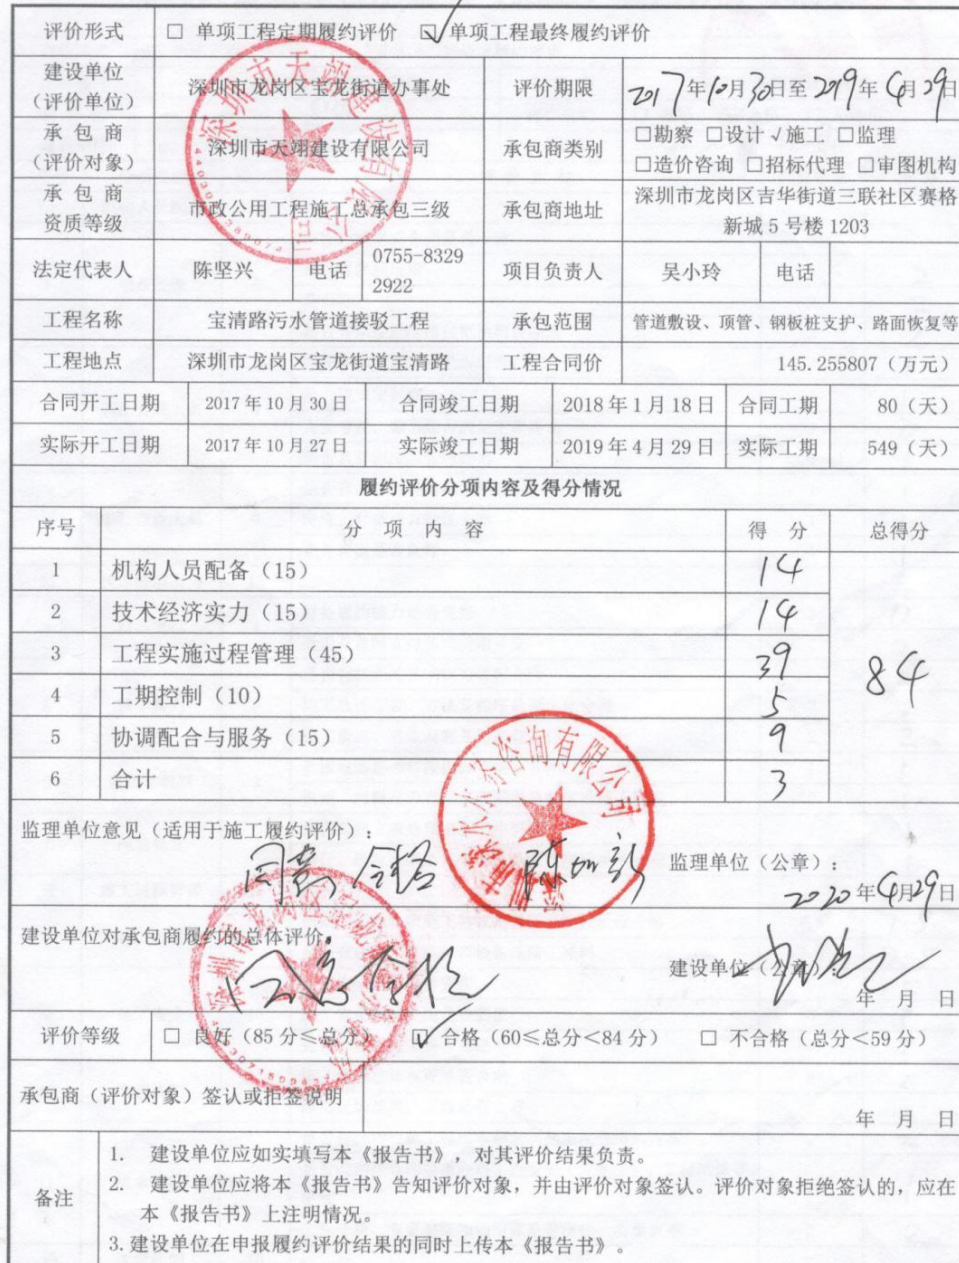 评价形式 □ 单项工程定期履约评价 ☑ 单项工程最终履约评价
建设单位（评价单位） 深圳市龙岗区宝龙街道办事处 评价期限 2017年10月30日至2019年4月29日
承包商（评价对象） 深圳市天翊建设有限公司 承包商类别 □勘察 □设计 √施工 □监理
□造价咨询 □招标代理 □审图机构
承包商资质等级 市政公用工程施工总承包三级 承包商地址 深圳市龙岗区吉华街道三联社区赛格
新城5号楼1203
法定代表人 陈坚兴 电话 0755-8329
2922 项目负责人 吴小玲 电话
工程名称 宝清路污水管道接驳工程 承包范围 管道敷设、顶管、钢板桩支护、路面恢复等
工程地点 深圳市龙岗区宝龙街道宝清路 工程合同价 145.255807（万元）
合同开工日期 2017年10月30日 合同竣工日期 2018年1月18日 合同工期 80（天）
实际开工日期 2017年10月27日 实际竣工日期 2019年4月29日 实际工期 549（天）
履约评价分项内容及得分情况
序号 分项内容 得分 总得分
1 机构人员配备（15） 14
2 技术经济实力（15） 14
3 工程实施过程管理（45） 39
84
4 工期控制（10） 5
5 协调配合与服务（15） 9
6 合计 3
监理单位意见（适用于施工履约评价）：
同意 合格
监理单位（公章）：
2020年4月29日
建设单位对承包商履约的总体评价。
同意合格
建设单位（公章）：
年 月 日
评价等级 □ 良好（85分≤总分） ☑ 合格（60≤总分<84分） □ 不合格（总分<59分）
承包商（评价对象）签认或拒签说明
年 月 日
备注
1. 建设单位应如实填写本《报告书》，对其评价结果负责。
2. 建设单位应将本《报告书》告知评价对象，并由评价对象签认。评价对象拒绝签认的，应在
本《报告书》上注明情况。
3. 建设单位在申报履约评价结果的同时上传本《报告书》。
深圳市天翊建设有限公司